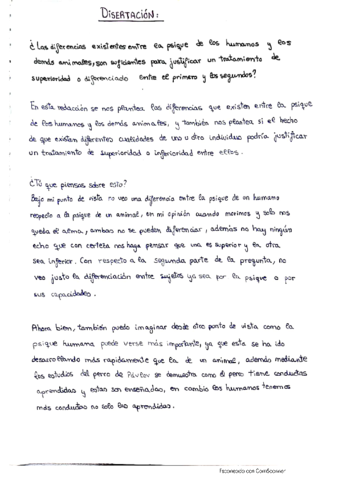 DISERTACIÓN:
¿Las diferencias existentes entre la psique de los humanos y los
demás animales, son suficientes para justificar un tratamiento de
superioridad o diferenciado entre el primero y los segundos?
En esta redacción se nos plantea las diferencias que existen entre la psique
de los humanos y los demás animales, y también nos plantea si el hecho
de que existan diferentes cualidades de uno u otro individuo podría justificar
un tratamiento de superioridad o inferioridad entre ellos.
¿Tú que piensas sobre esto?
Bajo mi punto de vista no veo una diferencia entre la psique de un humano
respecto a la psique de un animal, en mi opinión cuando morimos y solo nos
queda el alma, ambas no se pueden diferenciar, además no hay ningún
echo que con certeza nos haga pensar que una es superior y la otra
sea inferior. Con respecto a la segunda parte de la pregunta, no
veo justo la diferenciación entre sujetos ya sea por la psique o por
sus capacidades.
Ahora bien, también puedo imaginar desde otro punto de vista como la
psique humana puede verse más importante, ya que esta se ha ido
desarrollando más rapidamente que la de un animal, además mediante
los estudios del perro de Pávlov se demuestra como el perro tiene conductas
aprendidas y estas son enseñadas, en cambio los humanos tenemos
más conductas no solo las aprendidas.
Escaneado con CamScanner